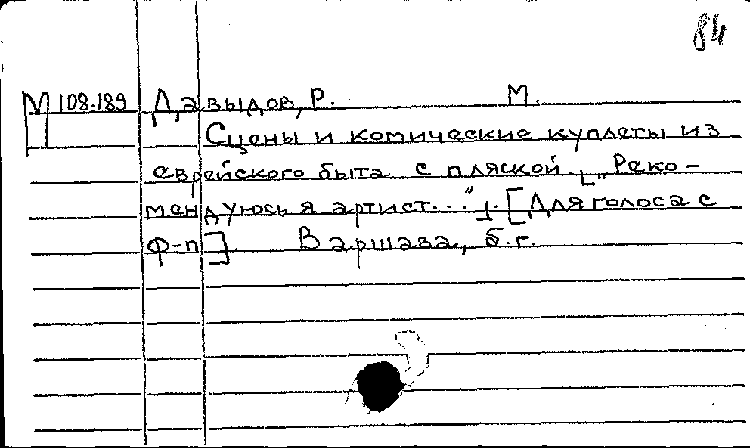 84
М 108.189 Давыдов, Р. М.
Сцены и комические куплеты из
еврейского быта с пляской. [„Реко-
мендуюсь я артист..."]. [Для голоса с
ф-п]. Варшава, б.г.